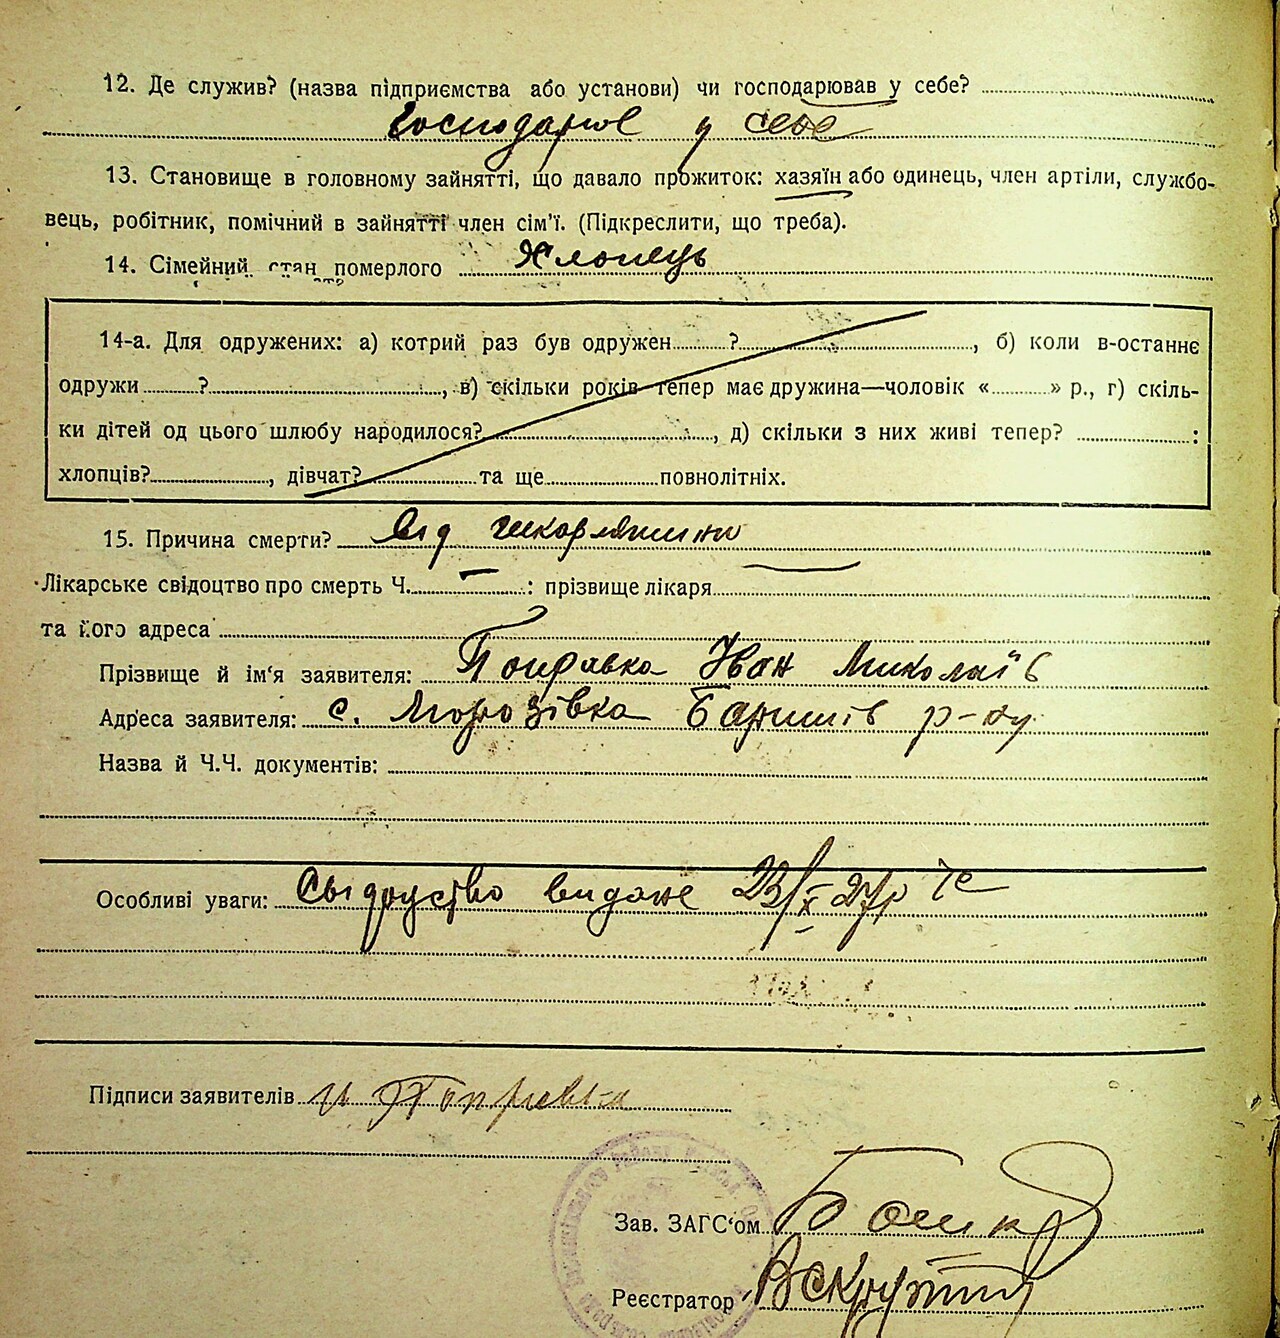 12. Де служив? (назва підприємства або установи) чи господарював у себе?
Господарює у себе
13. Становище в головному зайнятті, що давало прожиток: хазяїн або одинець, член артіли, службо-
вець, робітник, помічний в зайнятті член сім'ї. (Підкреслити, що треба).
14. Сімейний стан померлого Хлопець
14-а. Для одружених: а) котрий раз був одружен ?, б) коли в-останнє
одружи ?, в) скільки років тепер має дружина—чоловік « » р., г) скіль-
ки дітей од цього шлюбу народилося?, д) скільки з них живі тепер? :
хлопців?, дівчат? та ще повнолітніх.
15. Причина смерти? Від шкарлятини
Лікарське свідоцтво про смерть Ч. — : прізвище лікаря
та його адреса
Прізвище й ім'я заявителя: Поправка Іван Миколаїв
Адреса заявителя: с. Морозівка Баришів р-ну
Назва й Ч.Ч. документів:
Особливі уваги: Свідоцтво видане 23/X 27р
Підписи заявителів И Поправка
Зав. ЗАГС'ом
Реєстратор